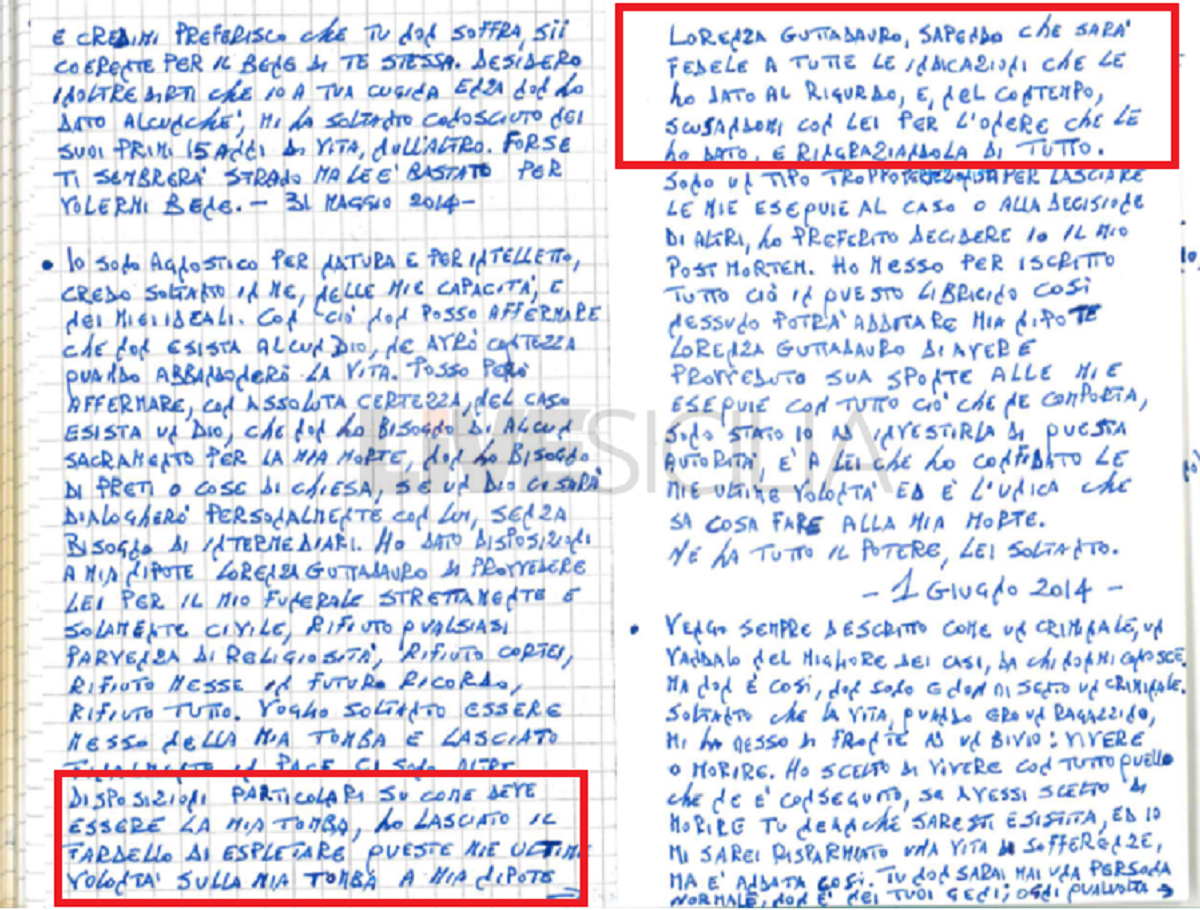 E CREDIMI PREFERISCO CHE TU NON SOFFRA, SII
COERENTE PER IL BENE DI TE STESSA. DESIDERO
INOLTRE DIRTI CHE IO A TUA CUGINA ENZA NON HO
DATO ALCUNCHÉ, MI HA SOLTANTO CONOSCIUTO NEI
SUOI PRIMI 15 ANNI DI VITA, NULL'ALTRO. FORSE
TI SEMBRERÀ STRANO MA LE È BASTATO PER
VOLERMI BENE. — 31 MAGGIO 2014 —
• IO SONO AGNOSTICO PER NATURA E PER INTELLETTO,
CREDO SOLTANTO IN ME, NELLE MIE CAPACITÀ, E
NEI MIEI IDEALI. CON CIÒ NON POSSO AFFERMARE
CHE NON ESISTA ALCUN DIO, NE AVRÒ CONTEZZA
QUANDO ABBANDONERÒ LA VITA. POSSO PERÒ
AFFERMARE, CON ASSOLUTA CERTEZZA, NEL CASO
ESISTA UN DIO, CHE NON HO BISOGNO DI ALCUN
SACRAMENTO PER LA MIA MORTE, NON HO BISOGNO
DI PRETI O COSE DI CHIESA, SE UN DIO CI SARÀ
DIALOGHERÒ PERSONALMENTE CON LUI, SENZA
BISOGNO DI INTERMEDIARI. HO DATO DISPOSIZIONI
A MIA NIPOTE LORENZA GUTTADAURO DI PROVVEDERE
LEI PER IL MIO FUNERALE STRETTAMENTE E
SOLAMENTE CIVILE, RIFIUTO QUALSIASI
PARVENZA DI RELIGIOSITÀ, RIFIUTO CORTEI,
RIFIUTO MESSE IN FUTURO RICORDO,
RIFIUTO TUTTO. VOGLIO SOLTANTO ESSERE
MESSO NELLA MIA TOMBA E LASCIATO
FINALMENTE IN PACE. CI SONO ALTRE
DISPOSIZIONI PARTICOLARI SU COME DEVE
ESSERE LA MIA TOMBA, HO LASCIATO IL
FARDELLO DI ESPLETARE, QUESTE MIE ULTIME
VOLONTÀ SULLA MIA TOMBA A MIA NIPOTE →
LORENZA GUTTADAURO, SAPENDO CHE SARÀ
FEDELE A TUTTE LE INDICAZIONI CHE LE
HO DATO AL RIGURDO, E, NEL CONTEMPO,
SCUSANDOMI CON LEI PER L'ONERE CHE LE
HO DATO, E RINGRAZIANDOLA DI TUTTO.
SONO UN TIPO TROPPO PER LASCIARE
LE MIE ESEQUIE AL CASO O ALLA DECISIONE
DI ALTRI, HO PREFERITO DECIDERE IO IL MIO
POST MORTEM. HO MESSO PER ISCRITTO
TUTTO CIÒ IN QUESTO LIBRICINO COSÌ
NESSUNO POTRÀ ADDITARE MIA NIPOTE
LORENZA GUTTADAURO DI AVERE
PROVVEDUTO SUA SPONTE ALLE MIE
ESEQUIE CON TUTTO CIÒ CHE NE COMPORTA,
SONO STATO IO AD INVESTIRLA DI QUESTA
AUTORITÀ, È A LEI CHE HO CONFIDATO LE
MIE ULTIME VOLONTÀ ED È L'UNICA CHE
SA COSA FARE ALLA MIA MORTE.
NE HA TUTTO IL POTERE, LEI SOLTANTO.
— 1 GIUGNO 2014 —
• VENGO SEMPRE DESCRITTO COME UN CRIMINALE, UN
VANDALO NEL MIGLIORE DEI CASI, DA CHI NON MI CONOSCE.
MA NON È COSÌ, NON SONO E NON MI SENTO UN CRIMINALE.
SOLTANTO CHE LA VITA, QUANDO ERO UN RAGAZZINO,
MI HA MESSO DI FRONTE AD UN BIVIO: VIVERE
O MORIRE. HO SCELTO DI VIVERE CON TUTTO QUELLO
CHE NE È CONSEGUITO, SE AVESSI SCELTO DI
MORIRE TU NEANCHE SARESTI ESISTITA, ED IO
MI SAREI RISPARMIATO UNA VITA DI SOFFERENZE,
MA È ANDATA COSÌ. TU NON SARAI MAI UNA PERSONA
NORMALE, NON È NEI TUOI GENI; OGNI QUALVOLTA →
LiVESICILIA